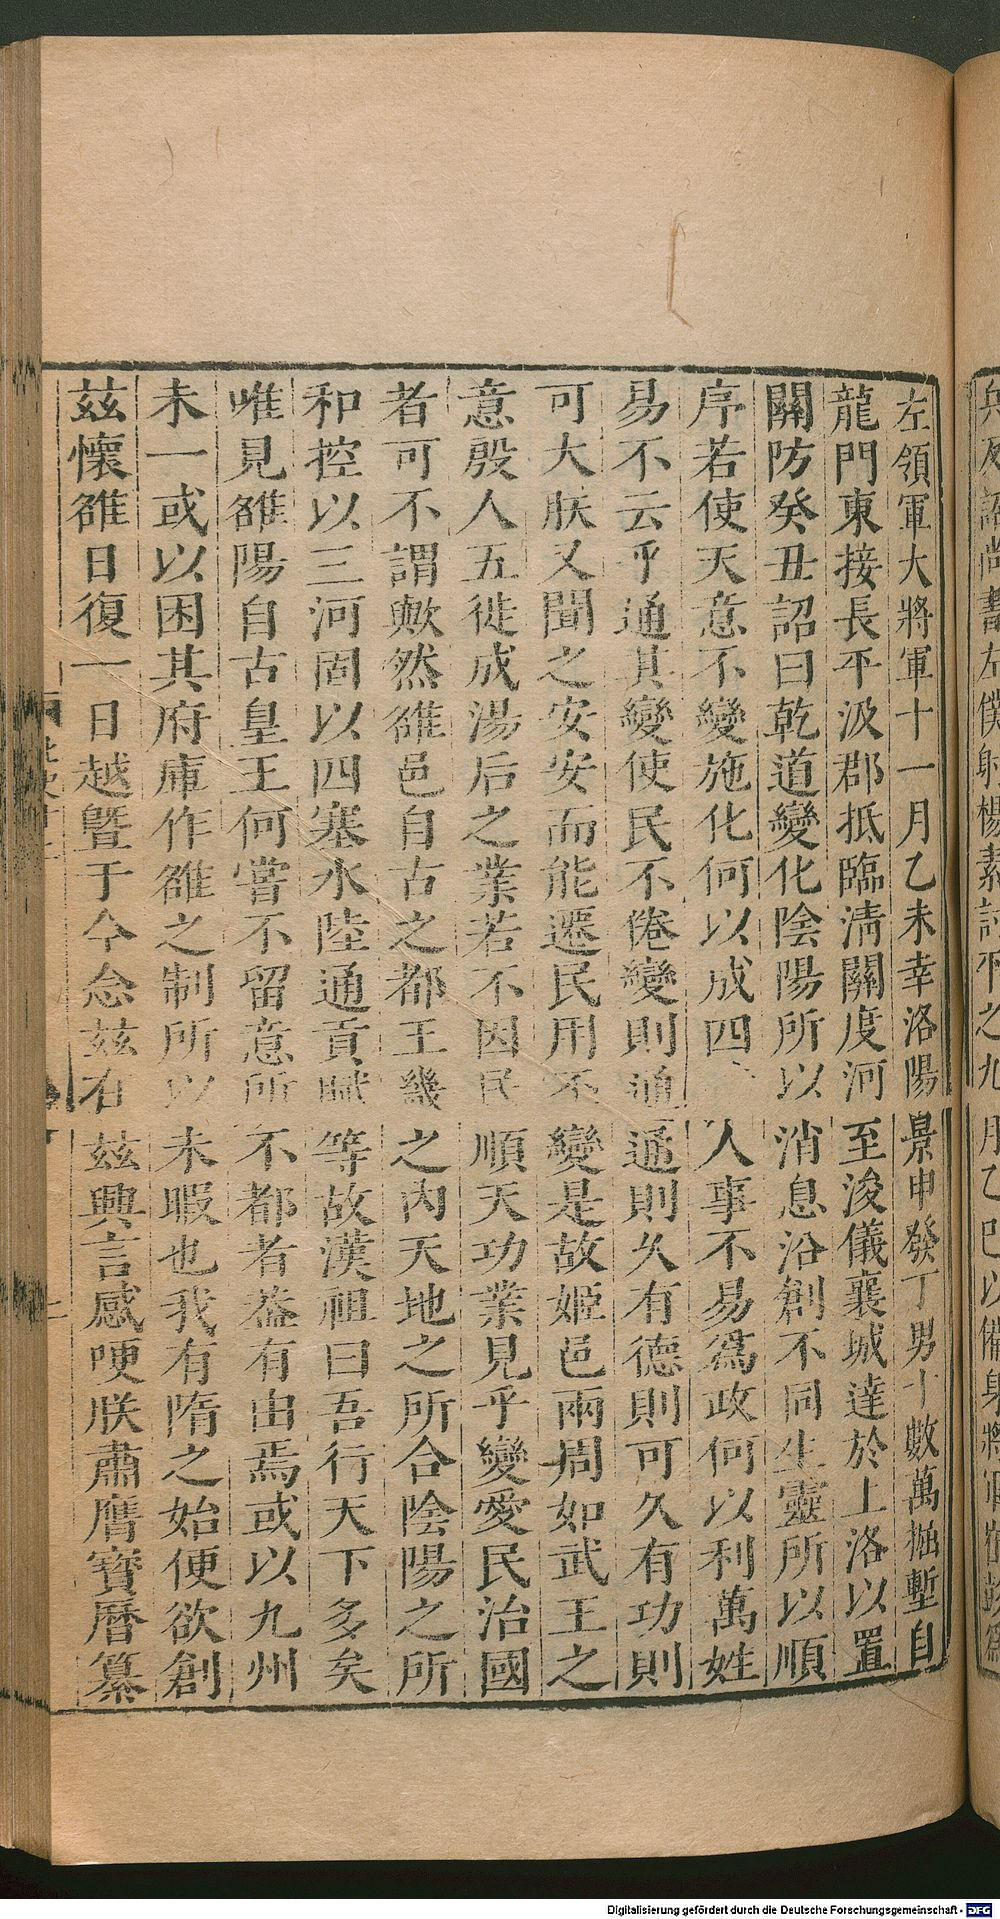 左領軍大將軍十一月乙未幸洛陽景申發丁男十數萬掘塹自
龍門東接長平汲郡抵臨淸關度河至浚儀襄城達於上洛以置
關防癸丑詔曰乾道變化陰陽所以消息沿創不同生靈所以順
序若使天意不變施化何以成四人事不易爲政何以利萬姓
易不云乎通其變使民不倦變則通通則久有德則可久有功則
可大朕又聞之安安而能遷民用丕變是故姬邑兩周如武王之
意殷人五徙成湯后之業若不因民順天功業見乎變愛民治國
者可不謂歟然雒邑自古之都王畿之內天地之所合陰陽之所
和控以三河固以四塞水陸通貢賦等故漢祖曰吾行天下多矣
唯見雒陽自古皇王何嘗不留意所不都者葢有由焉或以九州
未一或以困其府庫作雒之制所以未暇也我有隋之始便欲創
茲懷雒日復一日越曁于今念茲在茲興言感哽朕肅膺寶曆纂
兵及詔尚書左僕射楊素討平之九月乙巳以備身將軍崔彭爲
Digitalisierung gefördert durch die Deutsche Forschungsgemeinschaft - DFG